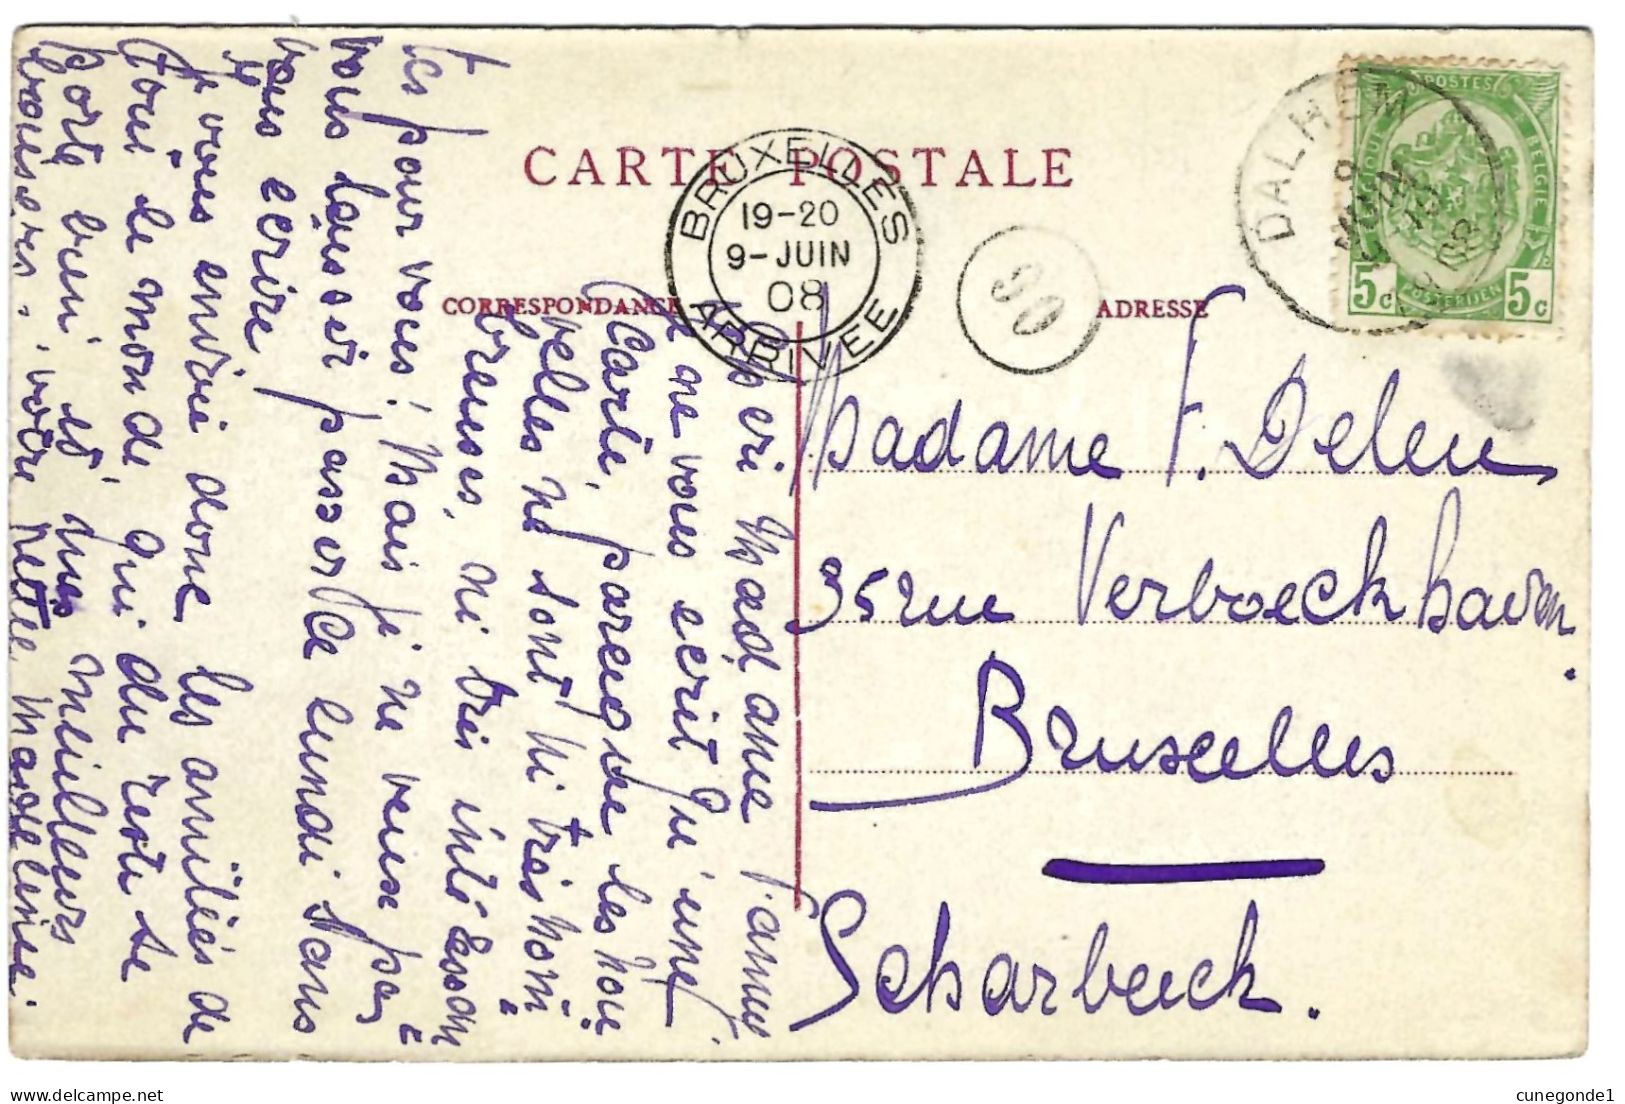 CARTE POSTALE
CORRESPONDANCE
ADRESSE
BRUXELLES
19-20
9-JUIN
08
ARRIVEE
90
DALHEM
9
JUIN
08
POSTES
BELGIQUE
BELGIE
POSTERIJEN
5c 5c
Madame F. Deleu
35 rue Verboeckhaven.
Bruxelles
Scharbeeck.
Chéri Madame Fanny.
Je ne vous écrit qu'une
Carte, parceque les nou
velles ne sont ni très nom
breuses, ni très intéressan
tes pour vous! Mais je ne veux pas
vous laisser passer ce lundi sans
vous écrire.
Je vous envoie donc les amitiés de
tout le monde, qui du reste se
porte bien, et mes meilleurs
baisers, votre petite Madeleine.
cunegonde1
delcampe.net